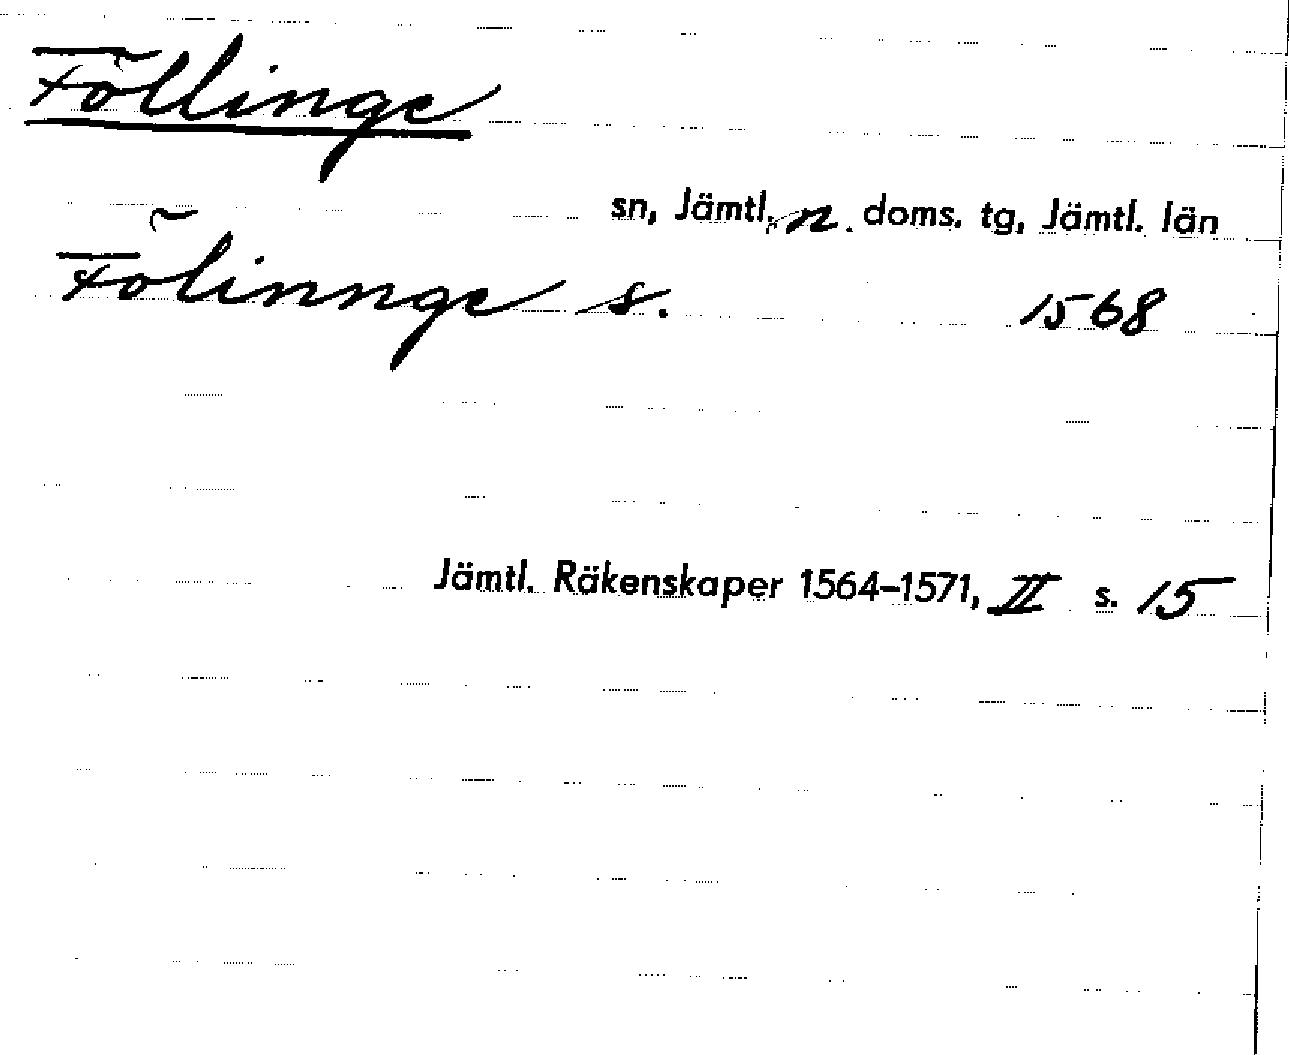 Föllinge
sn, Jämtl. n. doms. tg, Jämtl. län
Fölinnge s. 1568
Jämtl. Räkenskaper 1564–1571, II s. 15